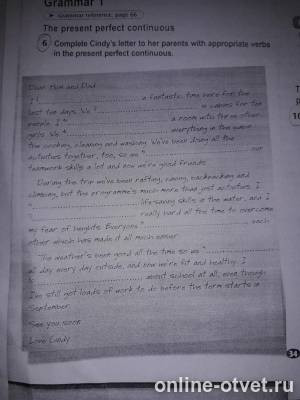 Grammar 1
➤ Grammar reference, page 66
The present perfect continuous
6 Complete Cindy's letter to her parents with appropriate verbs
in the present perfect continuous.
Dear Mum and Dad
I 1 a fantastic time here for the
last ten days. We 2 in cabins for ten
people. I 3 a room with three other
girls. We 4 everything in the
the cooking, cleaning and washing. We've been doing all the
activities together, too, so we 5 our
teamwork skills a lot and now we're good friends.
During the trip we've been rafting, canoeing, backpacking and
climbing, but the programme's much more than just activities. I
lifesaving skills in the water, and I
really hard all the time to overcome
my fear of heights. Everyone each
other which has made it all much easier.
The weather's been good all the time so we
all day every day outside, and now we're fit and healthy. I
about school at all, even though
I've still got loads of work to do before the term starts in
September.
See you soon
Love Cindy
34
online-otvet.ru